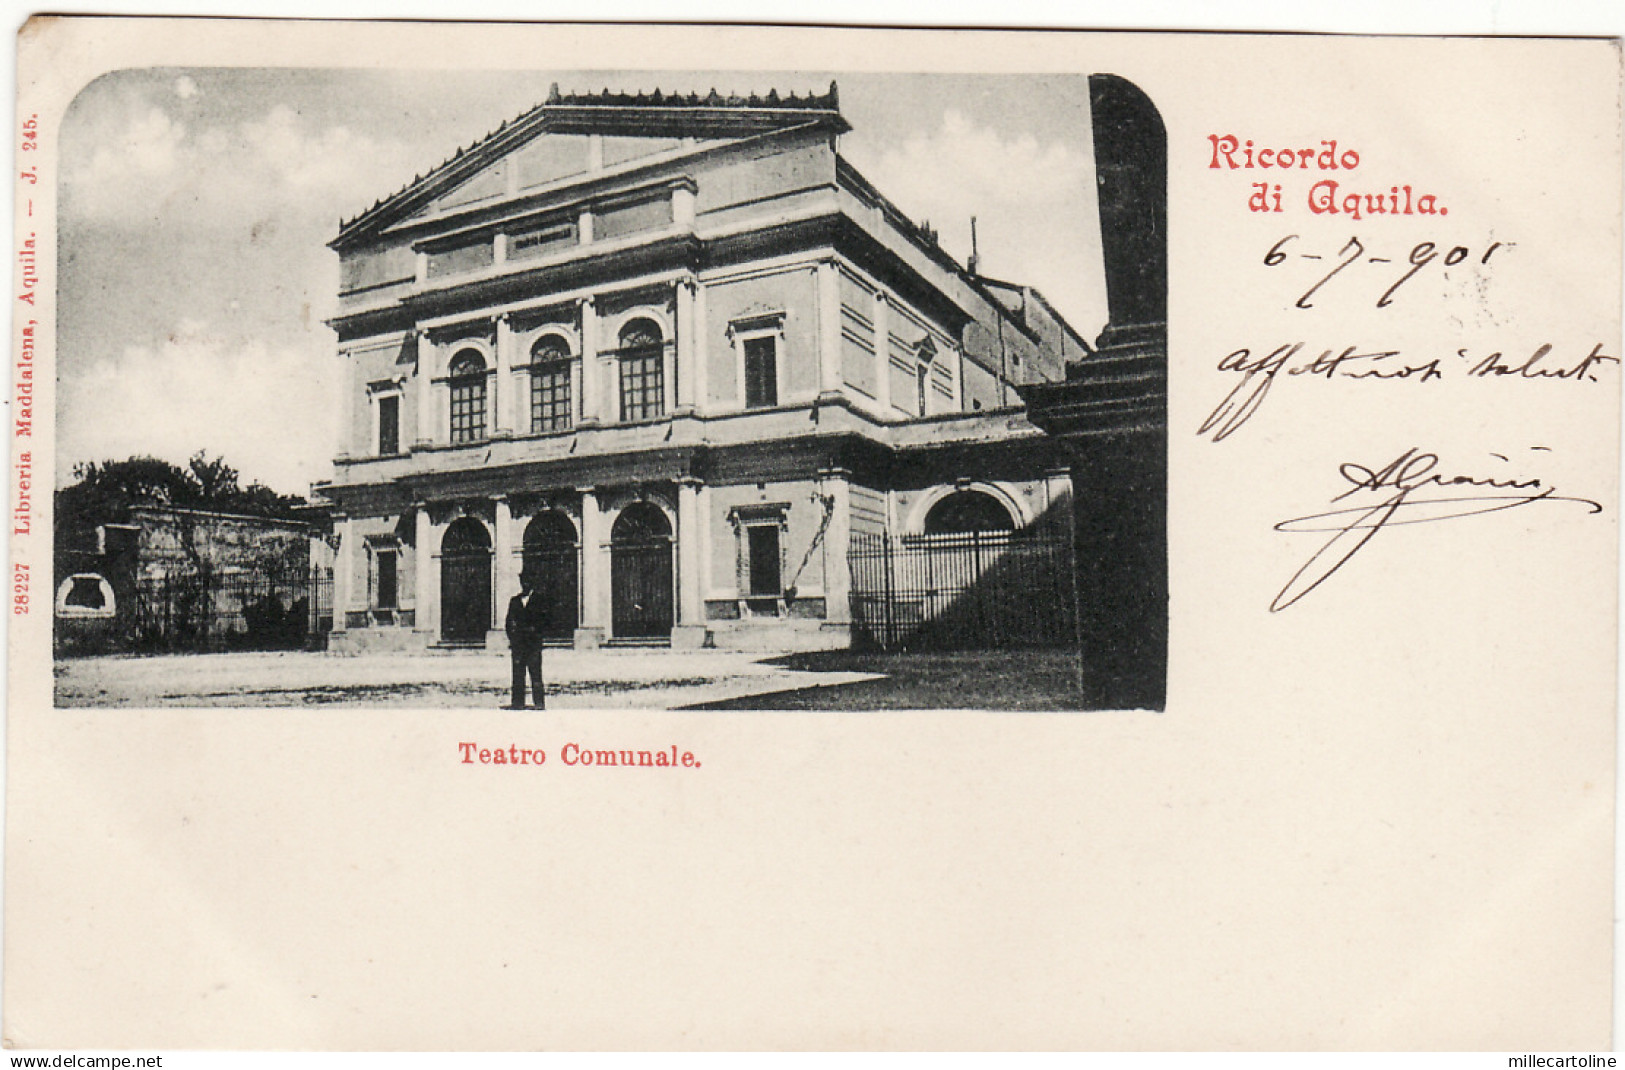 28227 Libreria Maddalena, Aquila. — J. 245.
Ricordo
di Aquila.
6-7-901
Affettuosi saluti
Teatro Comunale.
www.delcampe.net
millecartoline